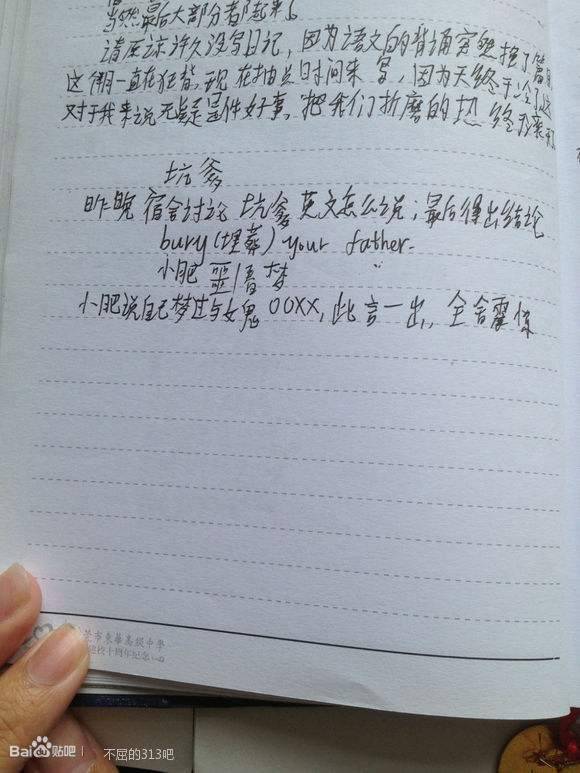 当然最后大部分都起来。
请原谅许久没写日记，因为语文的背诵突然换了篇目
这俩一直在狂背，现在抽点时间来写，因为天终于冷了，这
对于我来说无疑是件好事，把我们折磨的热终于
坑爹
昨晚宿舍讨论坑爹英文怎么说；最后得出结论
bury(埋葬) your father.
小肥噩/春梦
小肥说自己梦过与女鬼OOXX，此言一出，全舍震惊
市东华高级中学
建校十周年纪念
Bai贴吧
不屈的313吧